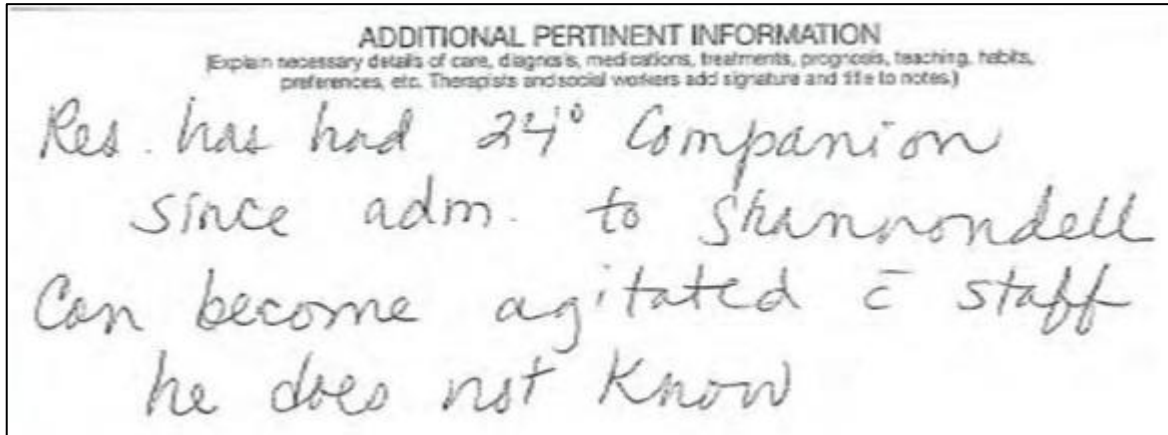 ADDITIONAL PERTINENT INFORMATION
(Explain necessary details of care, diagnosis, medications, treatments, prognosis, teaching, habits,
preferences, etc. Therapists and social workers add signature and title to notes.)
Res. has had 24° Companion
since adm. to Shannondell
Can become agitated c̄ staff
he does not know